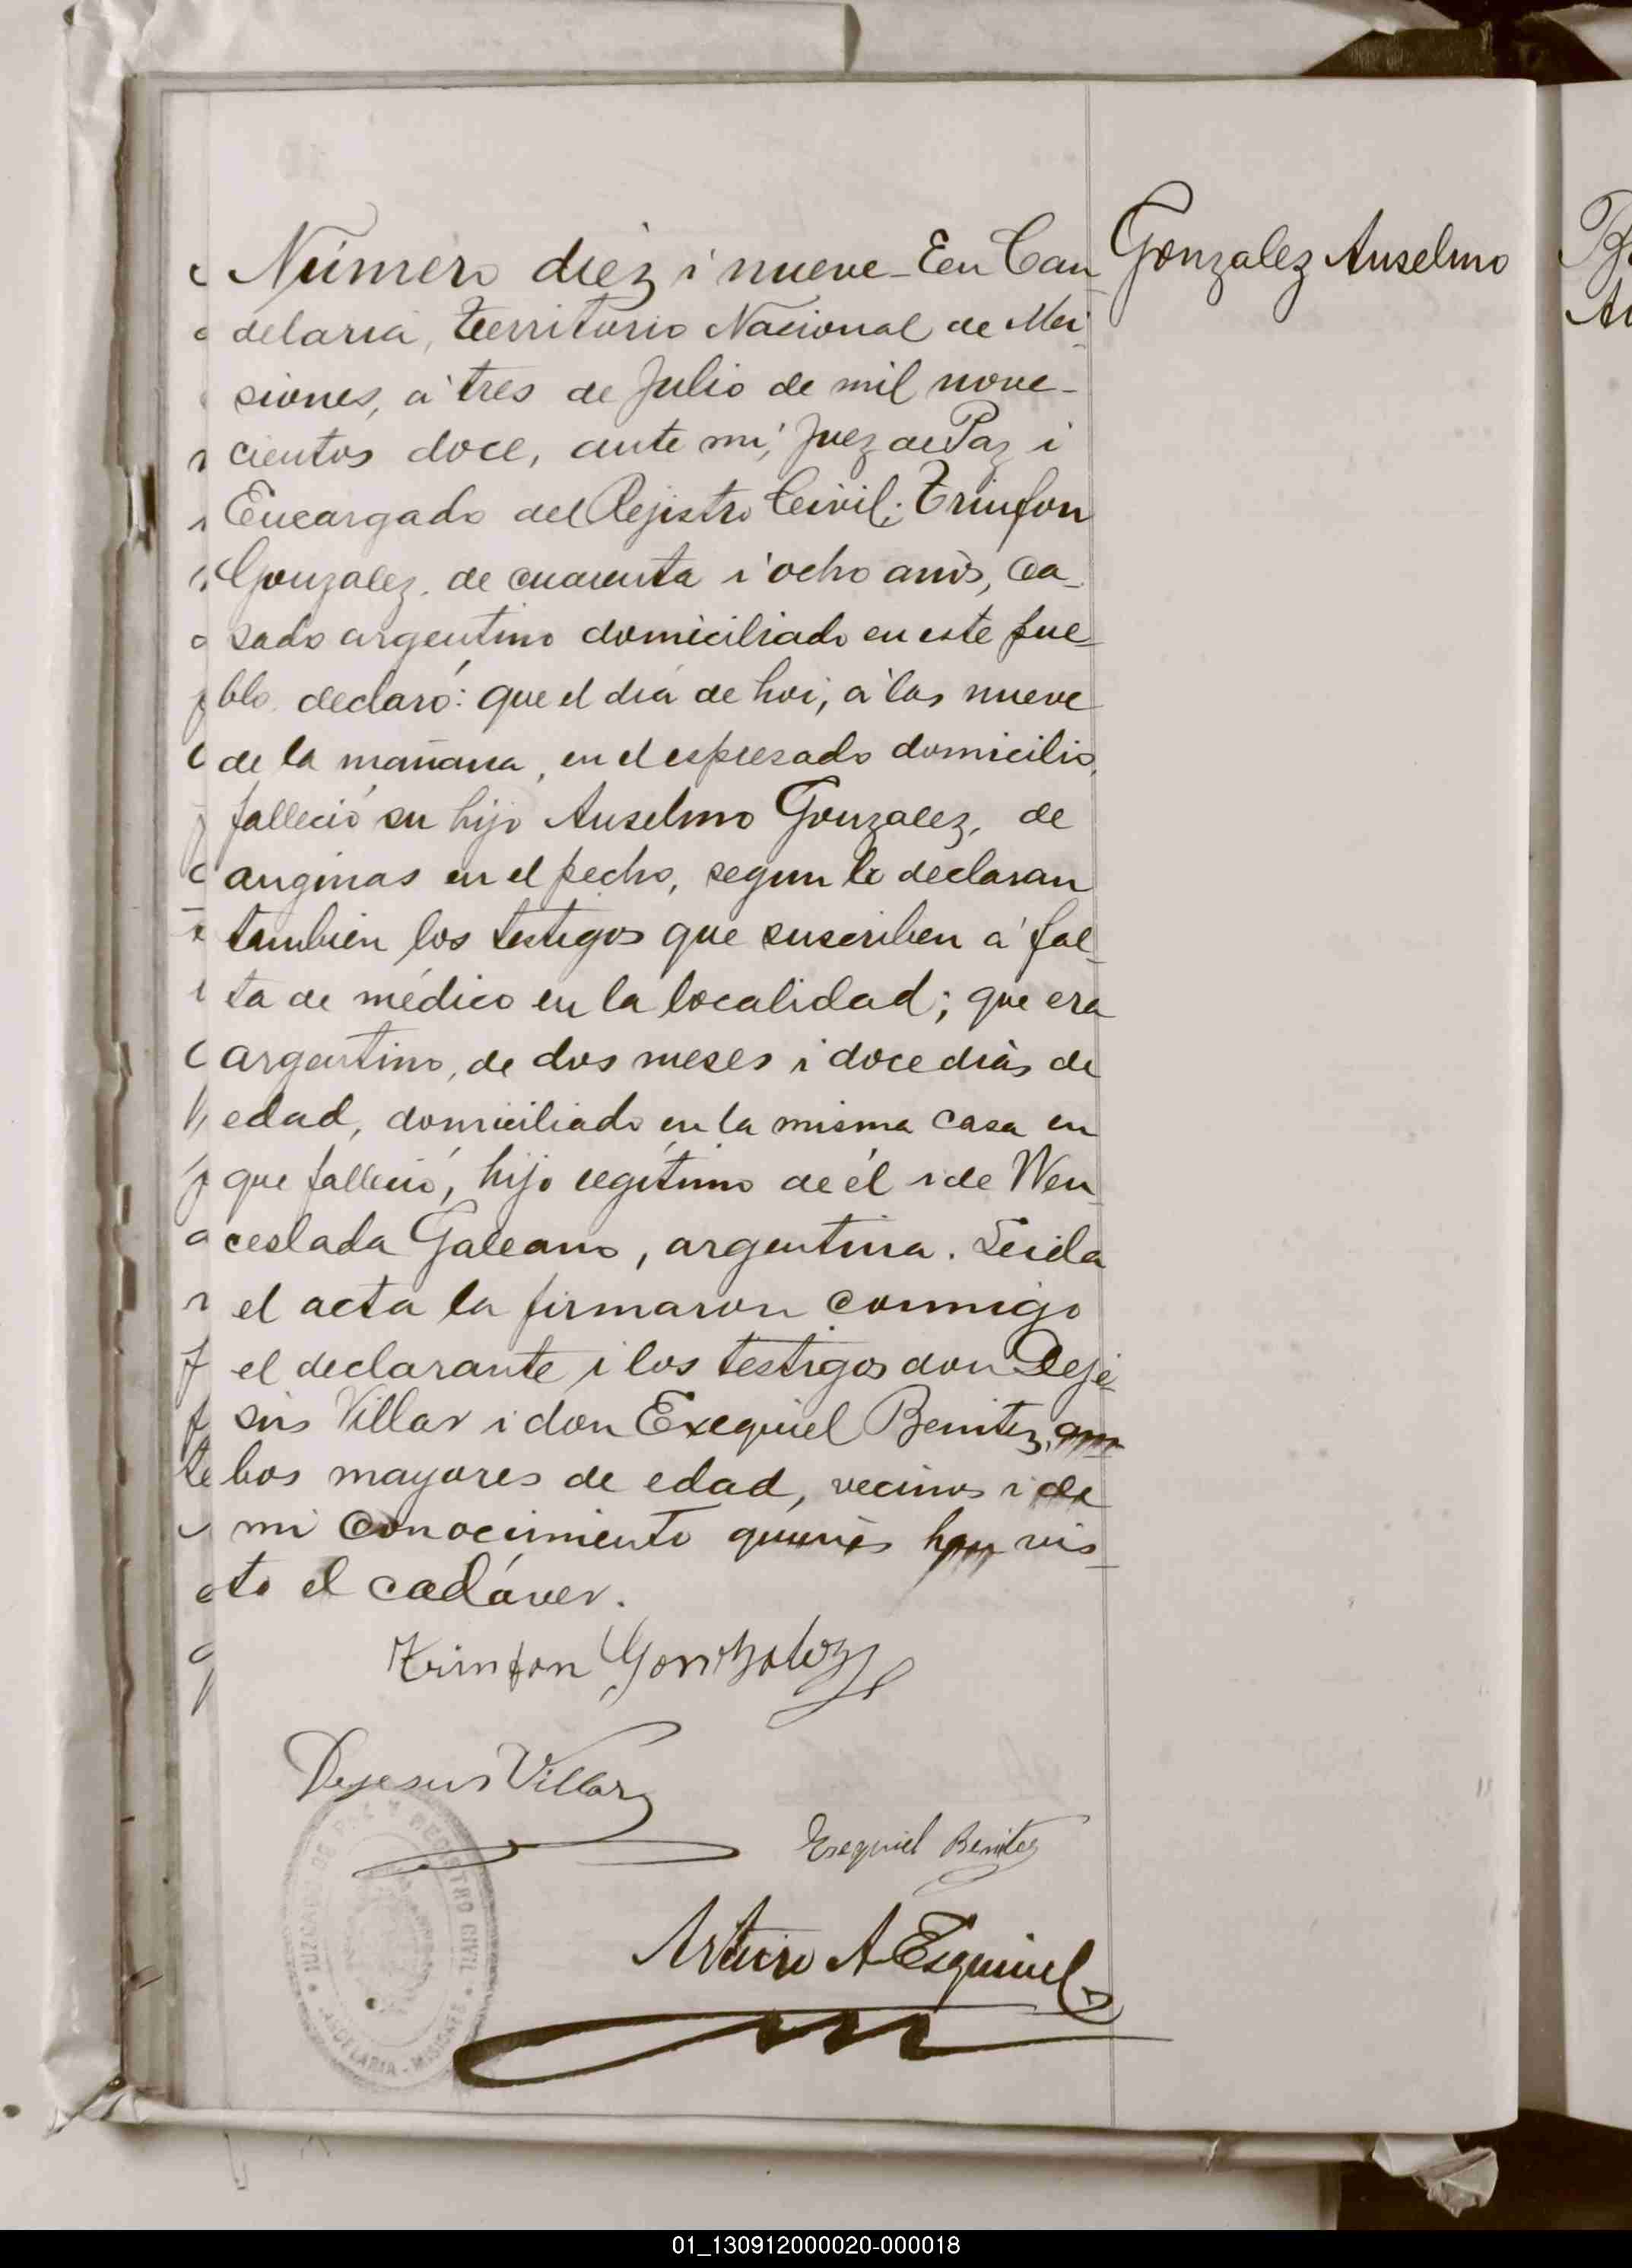 Número diez i nueve - En Can
Gonzalez Anselmo
delaria, Territorio Nacional de Mi-
siones, á tres de Julio de mil nove-
cientos doce, ante mí, Juez de Paz i
Encargado del Rejistro Civil; Trinfon
Gonzalez, de cuarenta i ocho años, ca-
sado argentino domiciliado en este pue-
blo, declaró: que el día de hoi, á las nueve
de la mañana, en el espresado domicilio,
falleció su hijo Anselmo Gonzalez, de
anginas en el pecho, segun lo declaran
tambien los testigos que suscriben á fal-
ta de médico en la localidad; que era
argentino, de dos meses i doce dias de
edad, domiciliado en la misma casa en
que falleció, hijo legítimo de él i de Wen-
ceslada Galeano, argentina. Leida
el acta la firmaron conmigo
el declarante i los testigos don Deje-
sús Villar i don Exequiel Benitez, am
bos mayores de edad, vecinos i de
mi conocimiento quienes han vis-
to el cadáver.
Trinfon Gonzalez
Dejesus Villar
Exequiel Benitez
JUZGADO DE PAZ Y REGISTRO CIVIL
CANDELARIA - MISIONES
Arturo A Esquivel
01_130912000020-000018